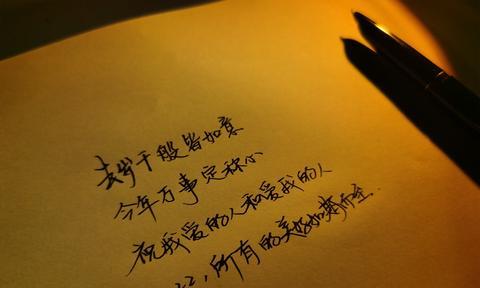 去岁千般皆如意
今年万事定称心
祝我爱的人和爱我的人
22，所有的美好如期而至